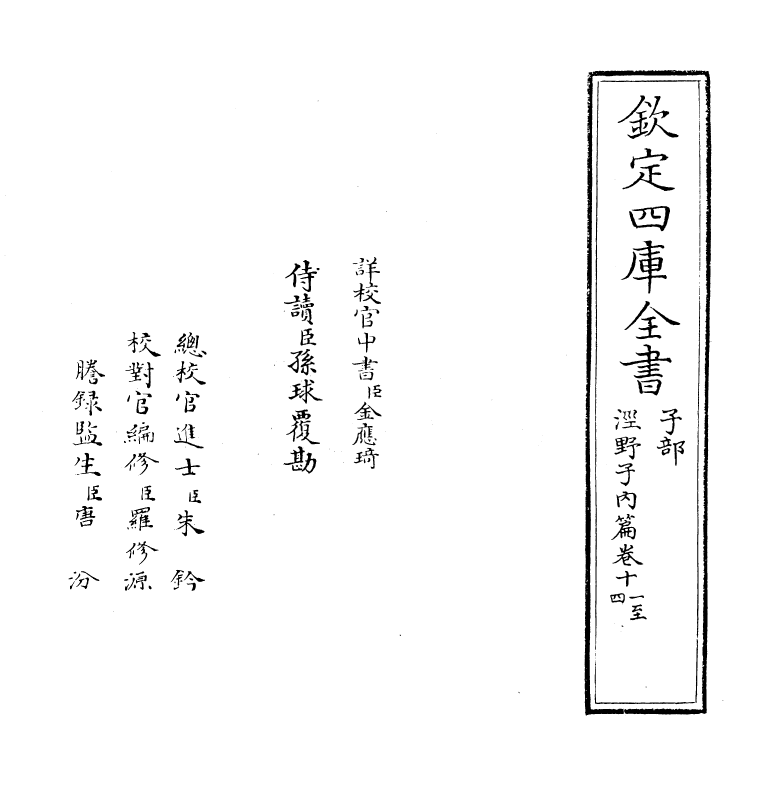 欽定四庫全書
子部
涇野子內篇卷十一至四
詳校官中書臣金應琦
侍讀臣孫球覆勘
總校官進士臣朱鈐
校對官編修臣羅修源
謄録監生臣唐汾